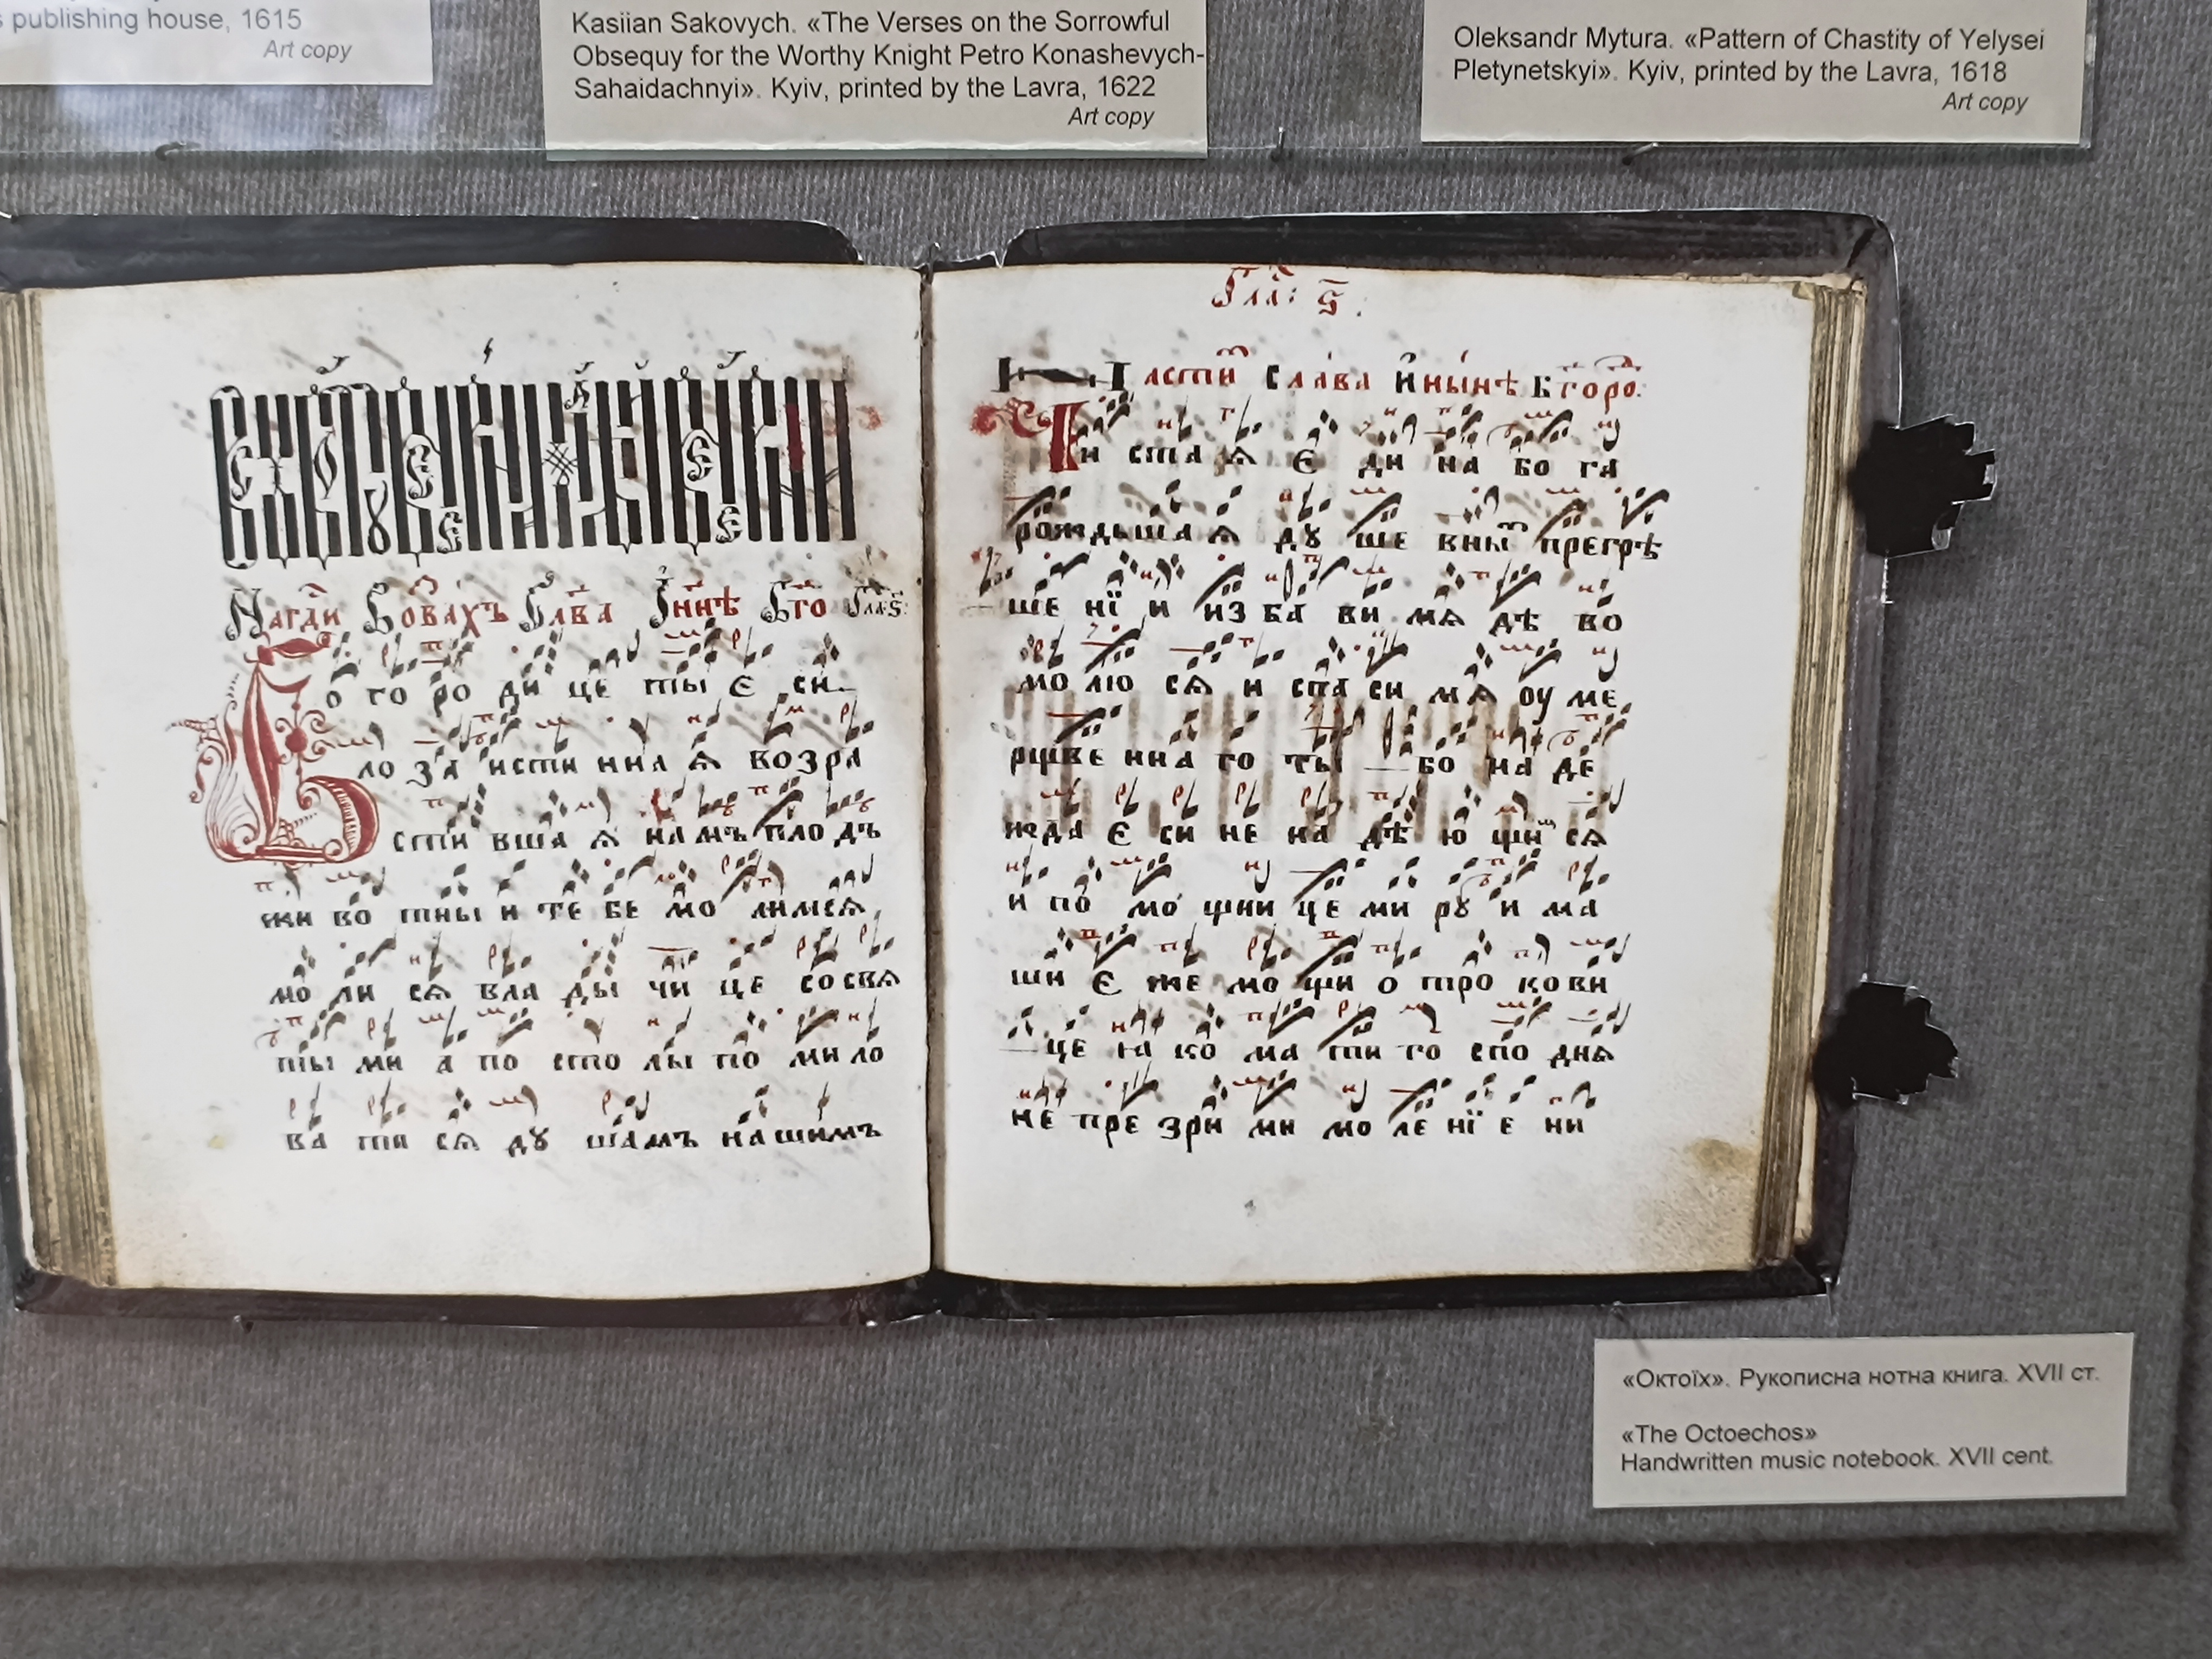 s publishing house, 1615
Art copy
Kasiian Sakovych. «The Verses on the Sorrowful
Obsequy for the Worthy Knight Petro Konashevych-
Sahaidachnyi». Kyiv, printed by the Lavra, 1622
Art copy
Oleksandr Mytura. «Pattern of Chastity of Yelysei
Pletynetskyi». Kyiv, printed by the Lavra, 1618
Art copy
Бо го ро ди це ты є си
ло за исти нна ѧ возра
сти вша ѧ на мъ пло дъ
жи во тны и те бе мо лимсѧ
мо ли сѧ вла ды чи це со свѧ
ты ми а по сто лы по ми ло
ва ти сѧ дꙋ шамъ нашимъ
Гла: ѕ
сла́ва и҆ ны́нѣ
Чи ста ѧ є ди на бо га
рождьша ѧ дꙋ ше вны прегрѣ
ше нї и из ба ви мѧ дѣ во
мо лю сѧ и спа си мѧ оу ме
рщве нна го ты бо на де
жда є си не на дѣ ю щи сѧ
и по мо щни це ми рꙋ и ма
ши є же мо щи о тро кови
це ꙗ ко ма ти го спо днѧ
не пре зри ми мо ле нї е ни
«Октоїх». Рукописна нотна книга. XVII ст.
«The Octoechos»
Handwritten music notebook. XVII cent.